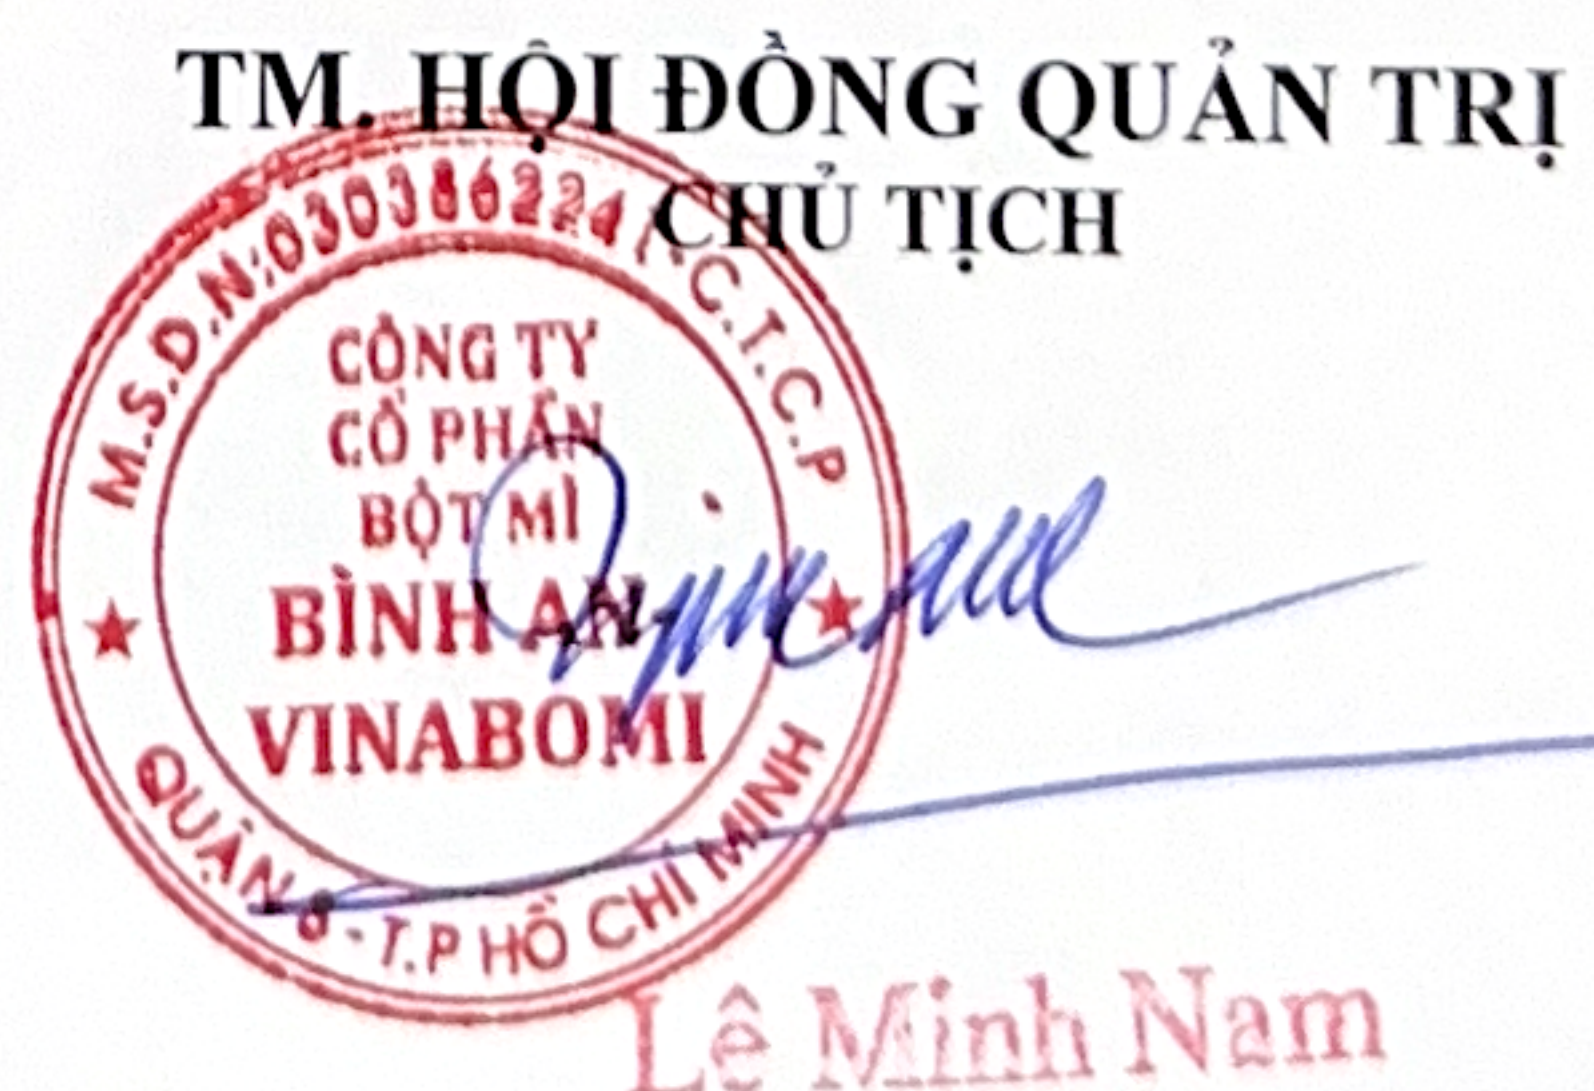 TM. HỘI ĐỒNG QUẢN TRỊ
CHỦ TỊCH
M.S.D.N:030386224 .C.T.C.P
CÔNG TY
CỔ PHẦN
BỘT MÌ
BÌNH AN
VINABOMI
QUẬN 8 - T.P HỒ CHÍ MINH
Lê Minh Nam